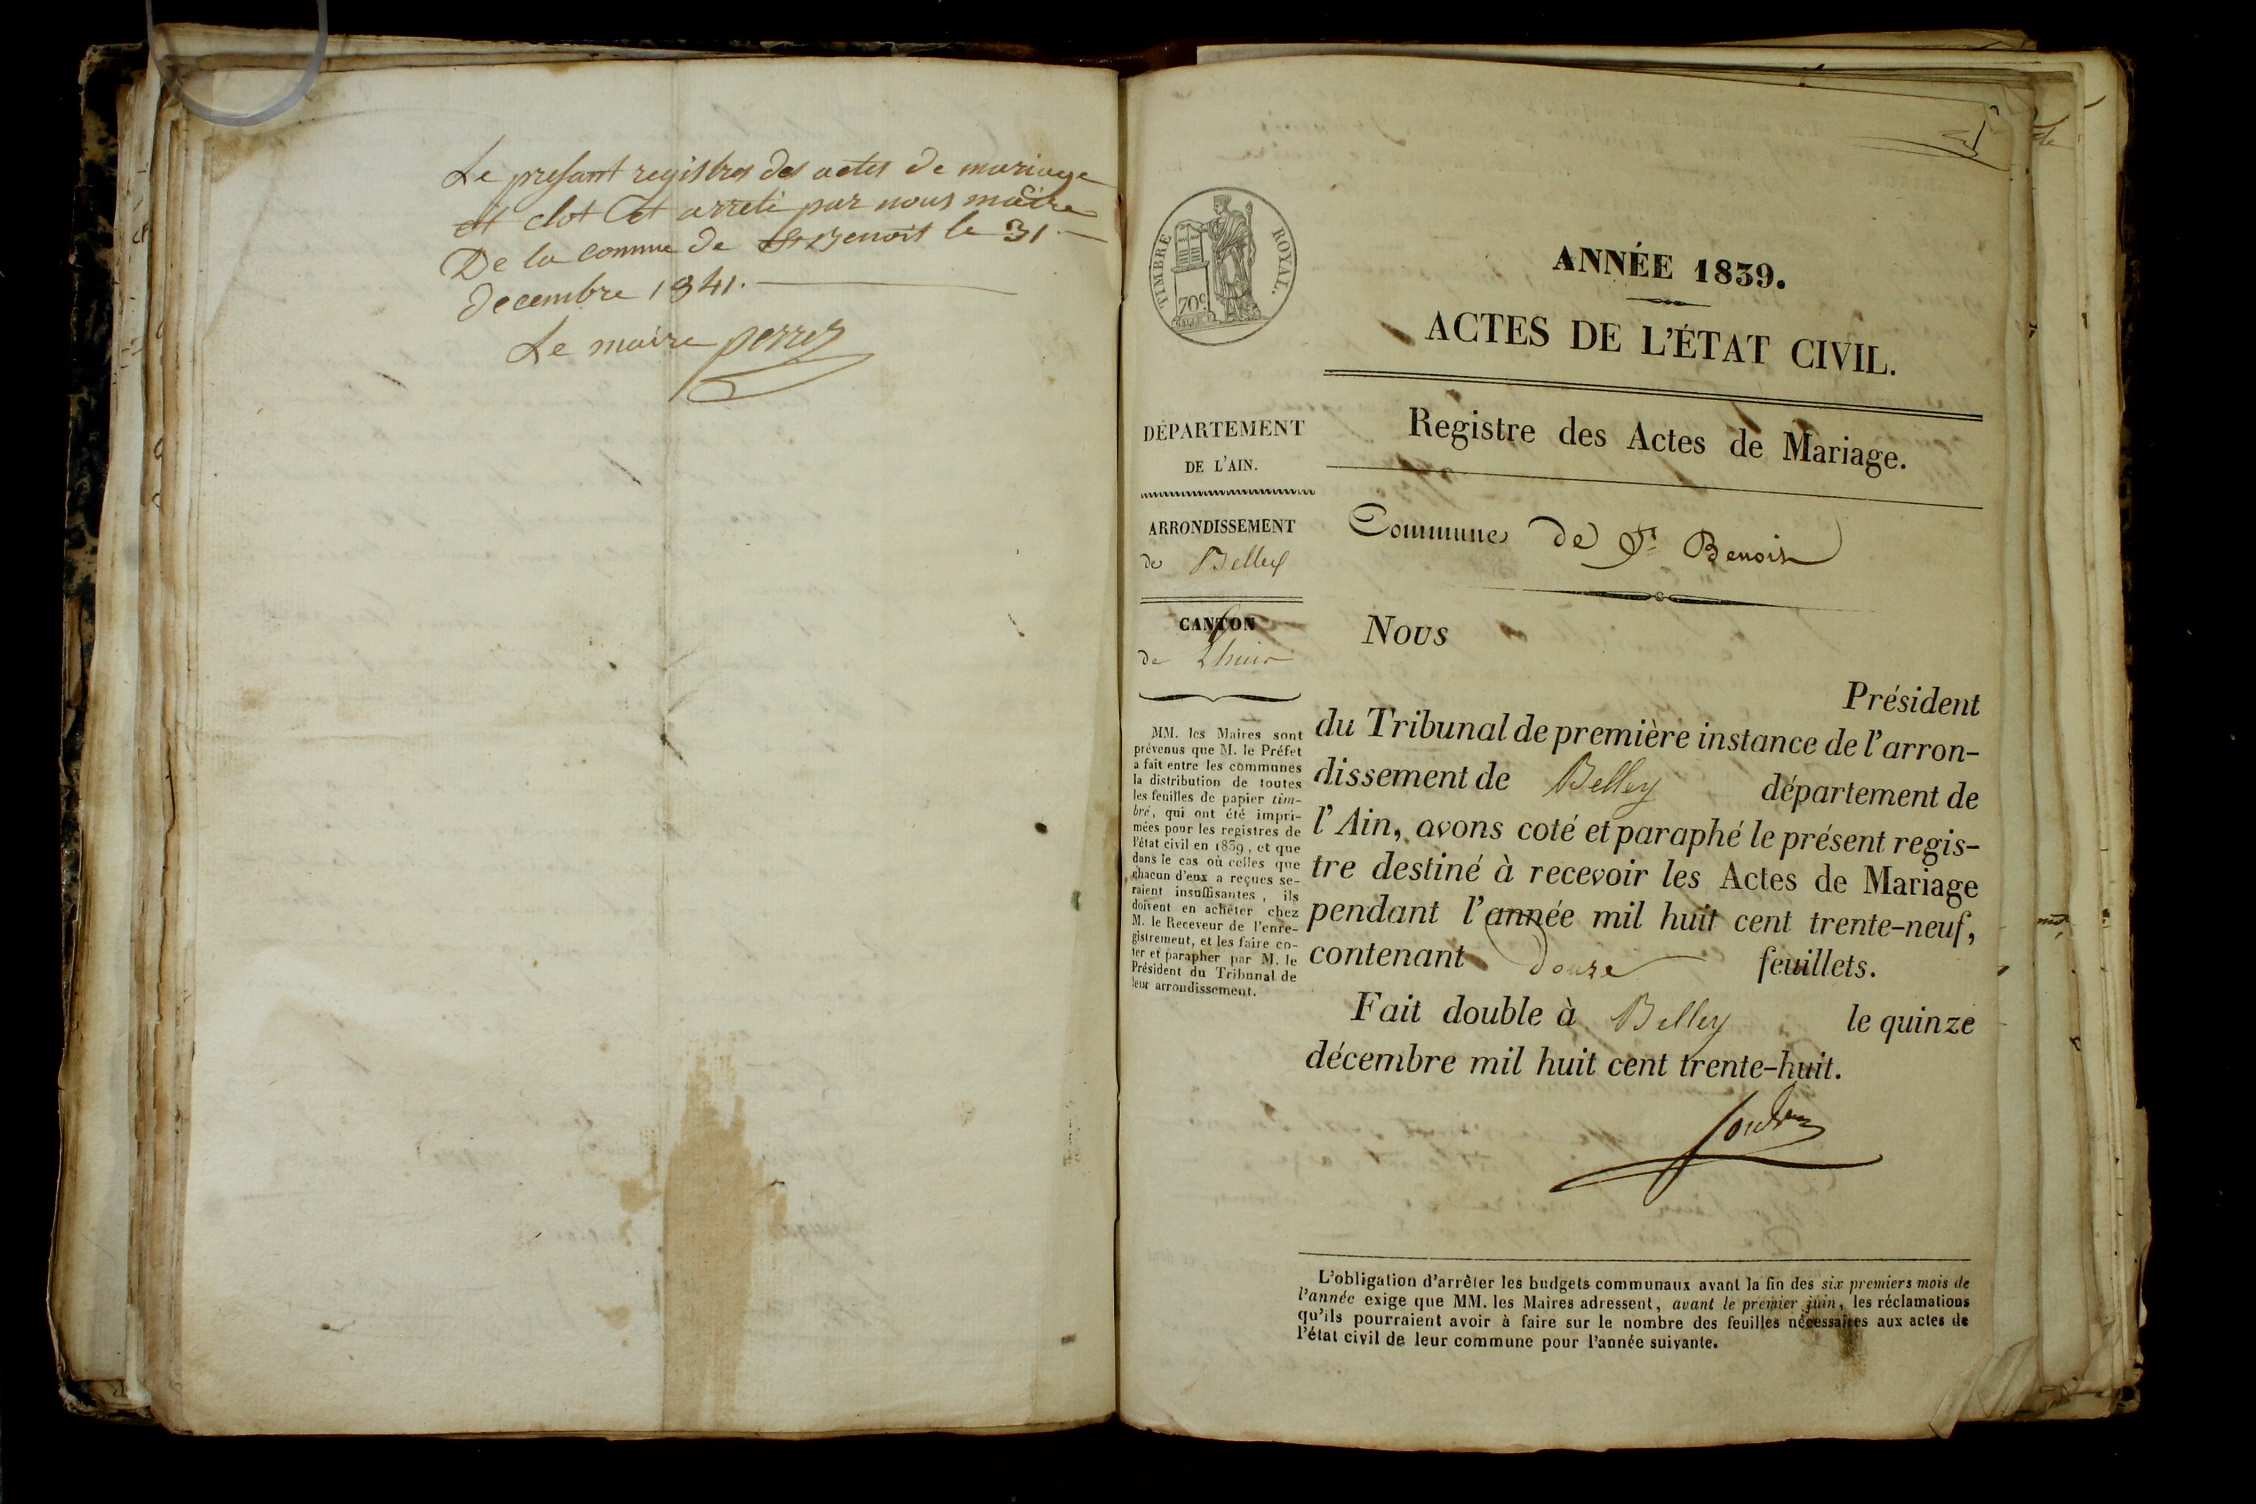 Le presant registres des actes de mariage
est clot et arreté par nous maire
De la comune de St Benoit le 31
decembre 1841.
Le maire perret
TIMBRE ROYAL.
70c
ANNÉE 1839.
ACTES DE L'ÉTAT CIVIL.
Registre des Actes de Mariage.
Commune de St Benoit
DÉPARTEMENT
DE L'AIN.
ARRONDISSEMENT
de Belley
CANTON
de Lhuis
MM. les Maires sont
prévenus que M. le Préfet
a fait entre les communes
la distribution de toutes
les feuilles de papier tim-
bré, qui ont été impri-
mées pour les registres de
l'état civil en 1839, et que
dans le cas où celles que
chacun d'eux a reçues se-
raient insuffisantes, ils
doivent en acheter chez
M. le Receveur de l'enre-
gistrement, et les faire co-
ter et parapher par M. le
Président du Tribunal de
leur arrondissement.
Nous
Président
du Tribunal de première instance de l'arron-
dissement de Belley département de
l'Ain, avons coté et paraphé le présent regis-
tre destiné à recevoir les Actes de Mariage
pendant l'année mil huit cent trente-neuf,
contenant douze feuillets.
Fait double à Belley le quinze
décembre mil huit cent trente-huit.
L'obligation d'arrêter les budgets communaux avant la fin des six premiers mois de
l'année exige que MM. les Maires adressent, avant le premier juin, les réclamations
qu'ils pourraient avoir à faire sur le nombre des feuilles nécessaires aux actes de
l'état civil de leur commune pour l'année suivante.